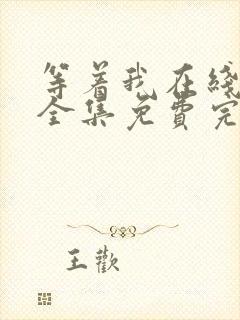 等着我在线
全集免費完
王歡